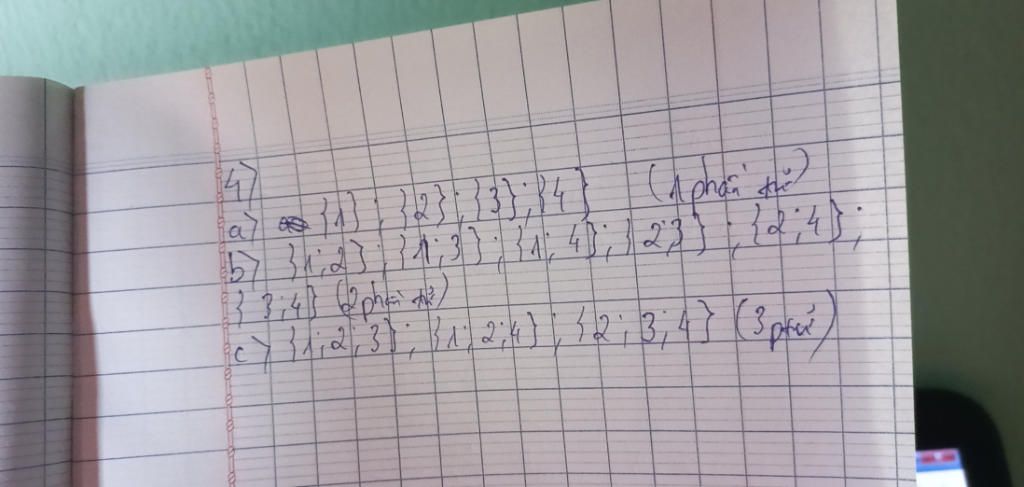 4)
a) {1} ; {2} ; {3} ; {4} (1 phần tử)
b) {1 ; 2} ; {1 ; 3} ; {1 ; 4} ; {2 ; 3} ; {2 ; 4} ;
{3 ; 4} (2 phần tử)
c) {1 ; 2 ; 3} ; {1 ; 2 ; 4} ; {2 ; 3 ; 4} (3